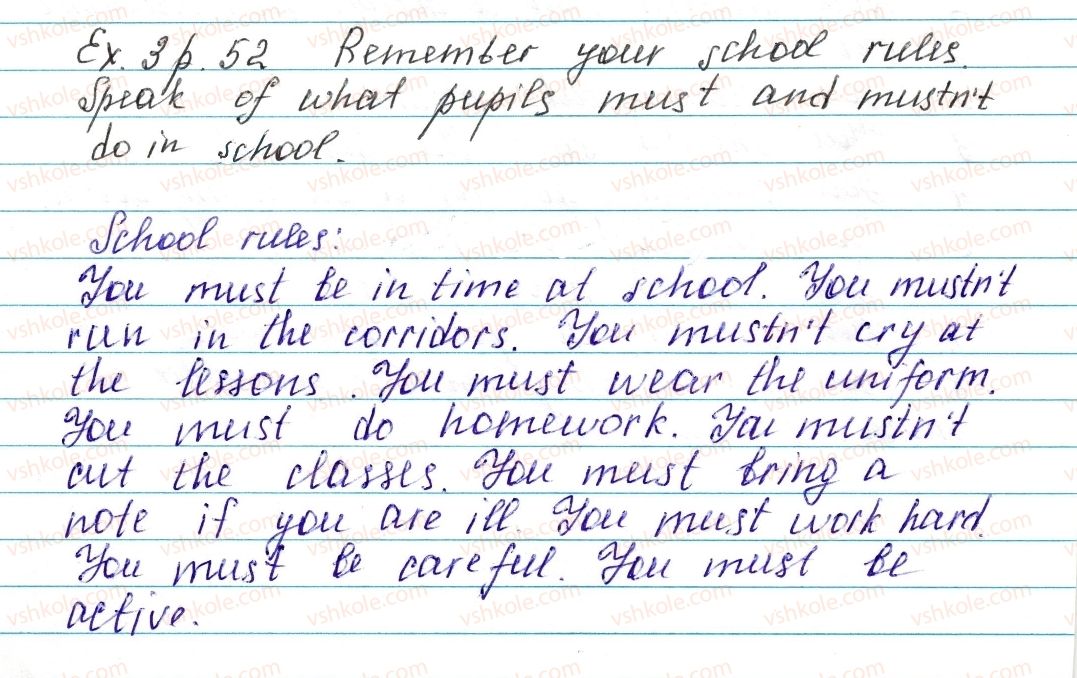 Ex. 3 p. 52 Remember your school rules.
Speak of what pupils must and mustn't
do in school.
School rules:
You must be in time at school. You mustn't
run in the corridors. You mustn't cry at
the lessons. You must wear the uniform.
You must do homework. You mustn't
cut the classes. You must bring a
note if you are ill. You must work hard.
You must be careful. You must be
active.